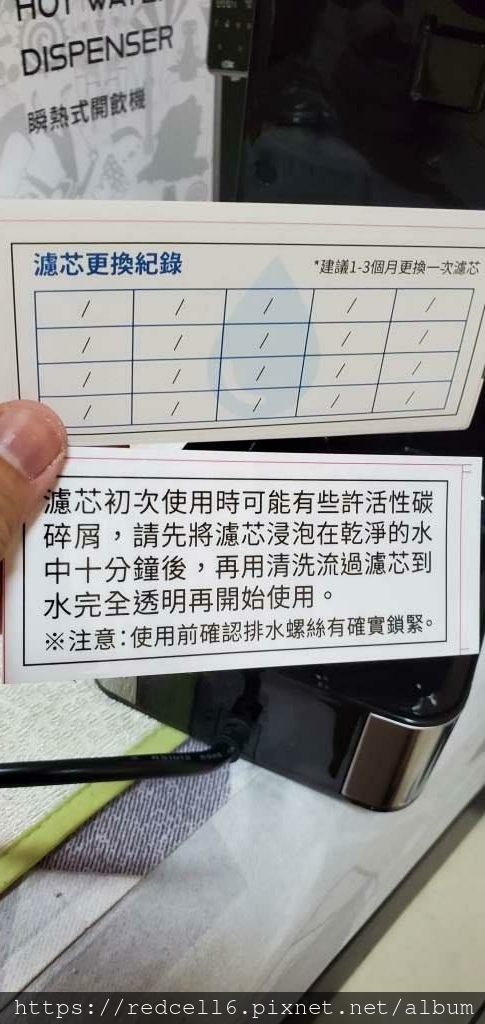 HOT WATER
DISPENSER
瞬熱式開飲機
濾芯更換紀錄
*建議1-3個月更換一次濾芯
/ / / / /
/ / / / /
/ / / / /
/ / / / /
濾芯初次使用時可能有些許活性碳
碎屑，請先將濾芯浸泡在乾淨的水
中十分鐘後，再用清洗流過濾芯到
水完全透明再開始使用。
※注意：使用前確認排水螺絲有確實鎖緊。
https://redcell6.pixnet.net/album